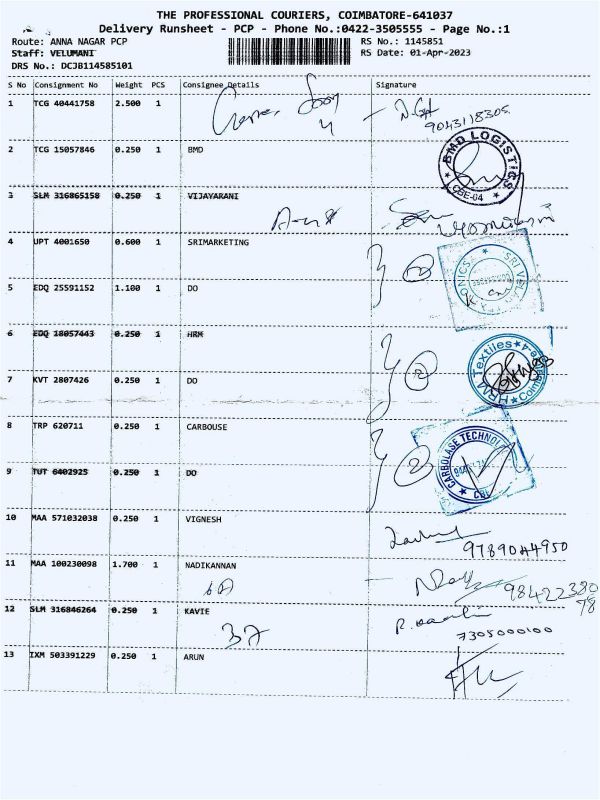 THE PROFESSIONAL COURIERS, COIMBATORE-641037
Delivery Runsheet - PCP - Phone No.:0422-3505555 - Page No.:1
Route: ANNA NAGAR PCP
Staff: VELUMANI
DRS No.: DCJB114585101
RS No.: 1145851
RS Date: 01-Apr-2023
S No Consignment No Weight PCS Consignee Details Signature
1 TCG 40441758 2.500 1
9043118305
2 TCG 15057846 0.250 1 BMD
BMD LOGISTICS
CBE-04
3 SLM 316865158 0.250 1 VIJAYARANI
4 UPT 4001650 0.600 1 SRIMARKETING
5 EDQ 25591152 1.100 1 DO
6 EDQ 18057443 0.250 1 HRM
HRM Textiles
7 KVT 2807426 0.250 1 DO
8 TRP 620711 0.250 1 CARBOUSE
CARBOLASE TECHNOL
9 TUT 6402925 0.250 1 DO
10 MAA 571032038 0.250 1 VIGNESH
9789044950
11 MAA 100230098 1.700 1 NADIKANNAN
98422380
78
12 SLM 316846264 0.250 1 KAVIE
37
7305000100
13 IXM 503391229 0.250 1 ARUN